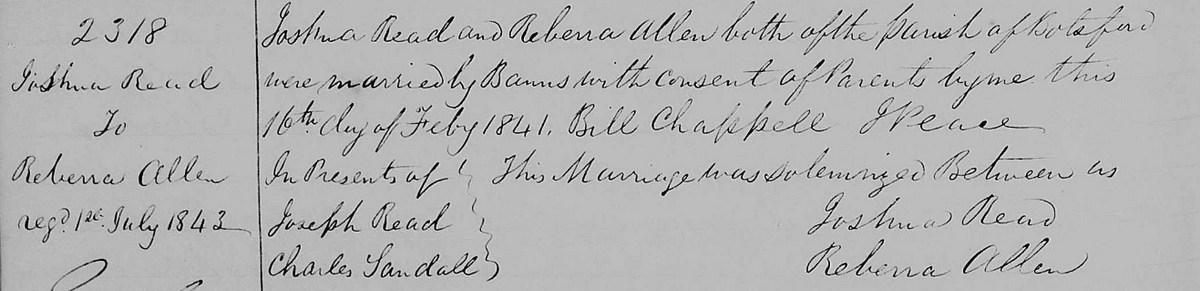 2318
Joshua Read
To
Rebecca Allen
regd. 1st. July 1843
Joshua Read and Rebecca Allen both of the parish of Botsford
were married by Banns with consent of Parents by me this
16th day of Feby 1841. Bill Chappell J Peace
In Presents of } This Marriage was Solemnized Between us
Joseph Read
Charles Sandall
Joshua Read
Rebecca Allen